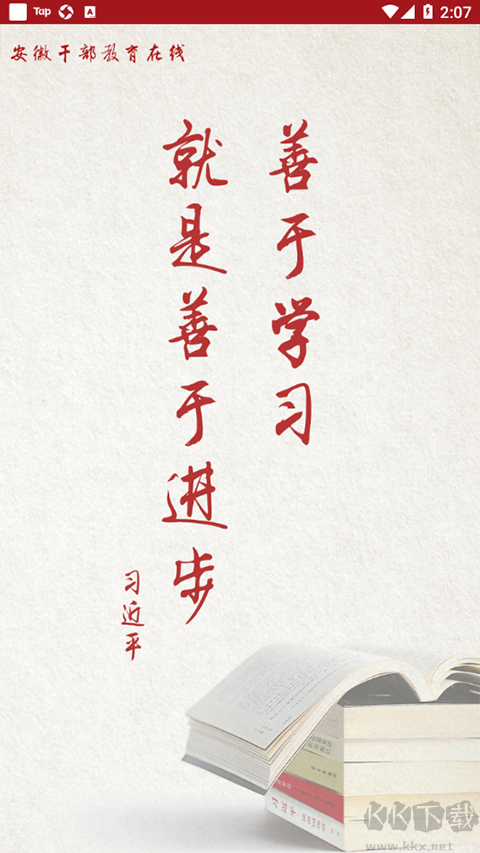 Tap
A
2:07
安徽干部教育在线
善于学习
就是善于进步
习近平
习近平
KK下载
www.kkx.net